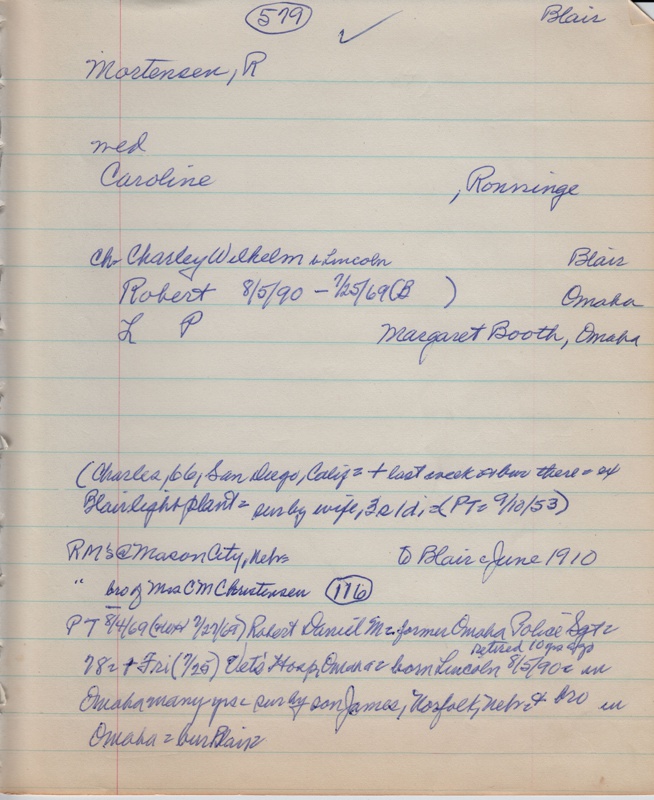 579 Blair
Mortensen, R
med
Caroline , Ronninge
ch Charley Wilhelm b Lincoln Blair
Robert 8/5/90 - 7/25/69 (B ) Omaha
L P Margaret Booth, Omaha
(Charles, 66, San Diego, Calif = + last week + bur there = ex
Blair light plant = sur by wife, 3s 1d, = (PT = 9/10/53)
RM's @ Mason City, Nebr to Blair c June 1910
" bro of Mrs CM Christensen 116
PT 8/4/69 ( 7/27/69) Robert Daniel M = former Omaha Police Sgt =
retired 10 yrs ago
78 = + Fri (7/25) Vets Hosp, Omaha = born Lincoln 8/5/90 = in
Omaha many yrs = sur by son James, Norfolk, Nebr + bro in
Omaha = bur Blair =